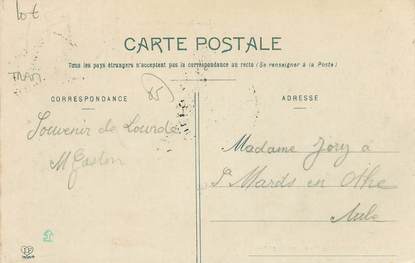 lot
CARTE POSTALE
Tous les pays étrangers n'acceptent pas la correspondance au recto (Se renseigner à la Poste)
TRAM
85
CORRESPONDANCE
ADRESSE
Souvenir de Lourde
M Gaston
Madame Jory à
St Mards en Othe
Aube